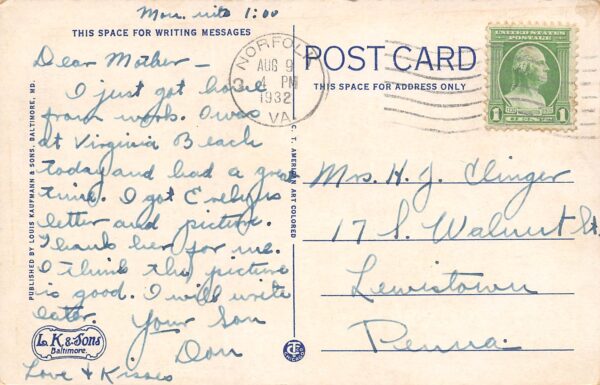 Mon. nite 1:00
THIS SPACE FOR WRITING MESSAGES
Dear Mother —
I just got home
from work. I was
at Virginia Beach
today and had a great
time. I got Evelyns
letter and picture.
Thank her for me.
I think the picture
is good. I will write
later. Your Son
Don
Love + Kisses
PUBLISHED BY LOUIS KAUFMANN & SONS, BALTIMORE, MD.
L. K. & Sons
Baltimore.
C. T. AMERICAN ART COLORED
NORFOLK
AUG 9
4 PM
1932
VA.
POST CARD
THIS SPACE FOR ADDRESS ONLY
UNITED STATES
POSTAGE
1 1
Mrs. H. J. Clinger
17 S. Walnut St.
Lewistown
Penna.